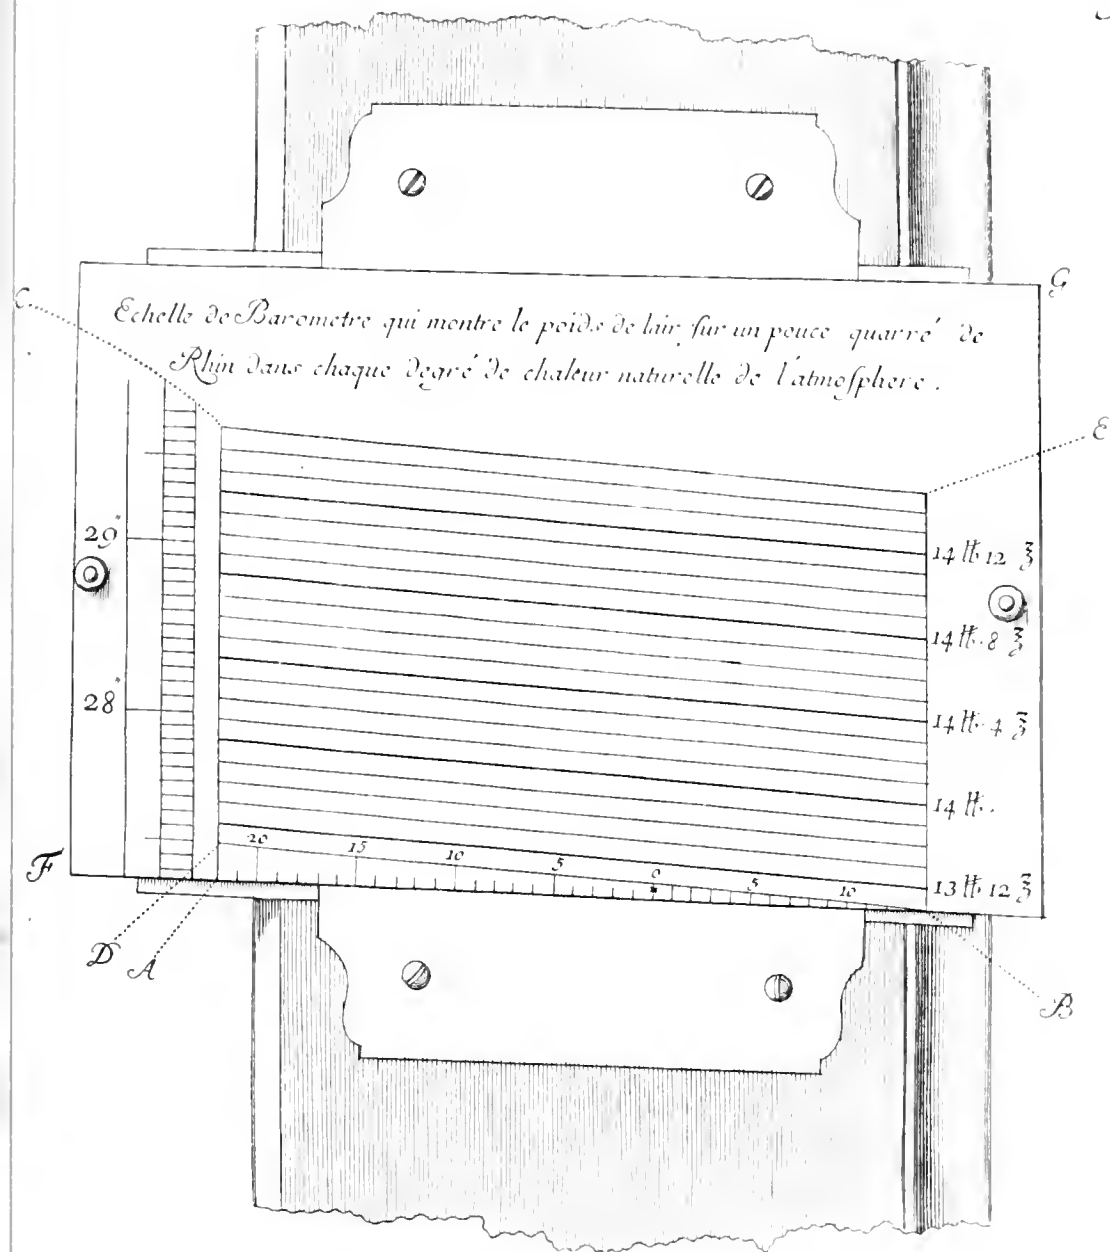 G
C
Echelle de Barometre qui montre le poids de lair sur un pouce quarré de
Rhin dans chaque degré de chaleur naturelle de l'atmosphere.
E
29"
14 ℔ 12 ℥
14 ℔ 8 ℥
28"
14 ℔ 4 ℥
14 ℔.
20 15 10 5 0 5 10
13 ℔ 12 ℥
F
D
A
B